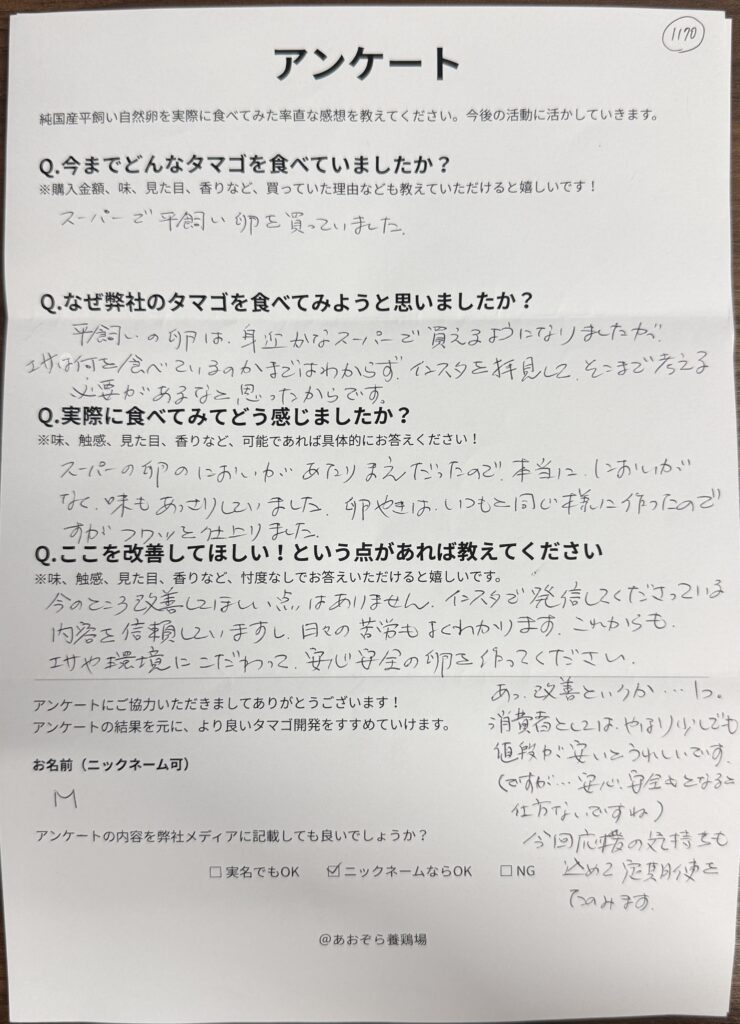 1170
アンケート
純国産平飼い自然卵を実際に食べてみた率直な感想を教えてください。今後の活動に活かしていきます。
Q.今までどんなタマゴを食べていましたか？
※購入金額、味、見た目、香りなど、買っていた理由なども教えていただけると嬉しいです！
スーパーで平飼い卵を買っていました。
Q.なぜ弊社のタマゴを食べてみようと思いましたか？
平飼いの卵は、身近かなスーパーで買えるようになりましたが、
エサは何を食べているのかまではわからず、インスタを拝見して、そこまで考える
必要があるなと思ったからです。
Q.実際に食べてみてどう感じましたか？
※味、触感、見た目、香りなど、可能であれば具体的にお答えください！
スーパーの卵のにおいがあたりまえだったので、本当に、においが
なく、味もあっさりしていました。卵やきは、いつもと同じ様に作ったので
すがフワッと仕上りました。
Q.ここを改善してほしい！という点があれば教えてください
※味、触感、見た目、香りなど、忖度なしでお答えいただけると嬉しいです。
今のところ改善してほしい点はありません。インスタで発信してくださっている
内容を信頼していますし、日々の苦労もよくわかります。これからも、
エサや環境にこだわって、安心安全の卵を作ってください。
あっ、改善というか…1つ。
消費者としては、やはり少しでも
値段が安いとうれしいです。
(ですが…安心、安全をとなると
仕方ないですね)
今回応援の気持ちも
込めて定期便を
たのみます。
アンケートにご協力いただきましてありがとうございます！
アンケートの結果を元に、より良いタマゴ開発をすすめていけます。
お名前（ニックネーム可）
M
アンケートの内容を弊社メディアに記載しても良いでしょうか？
□ 実名でもOK ☑ ニックネームならOK □ NG
@あおぞら養鶏場